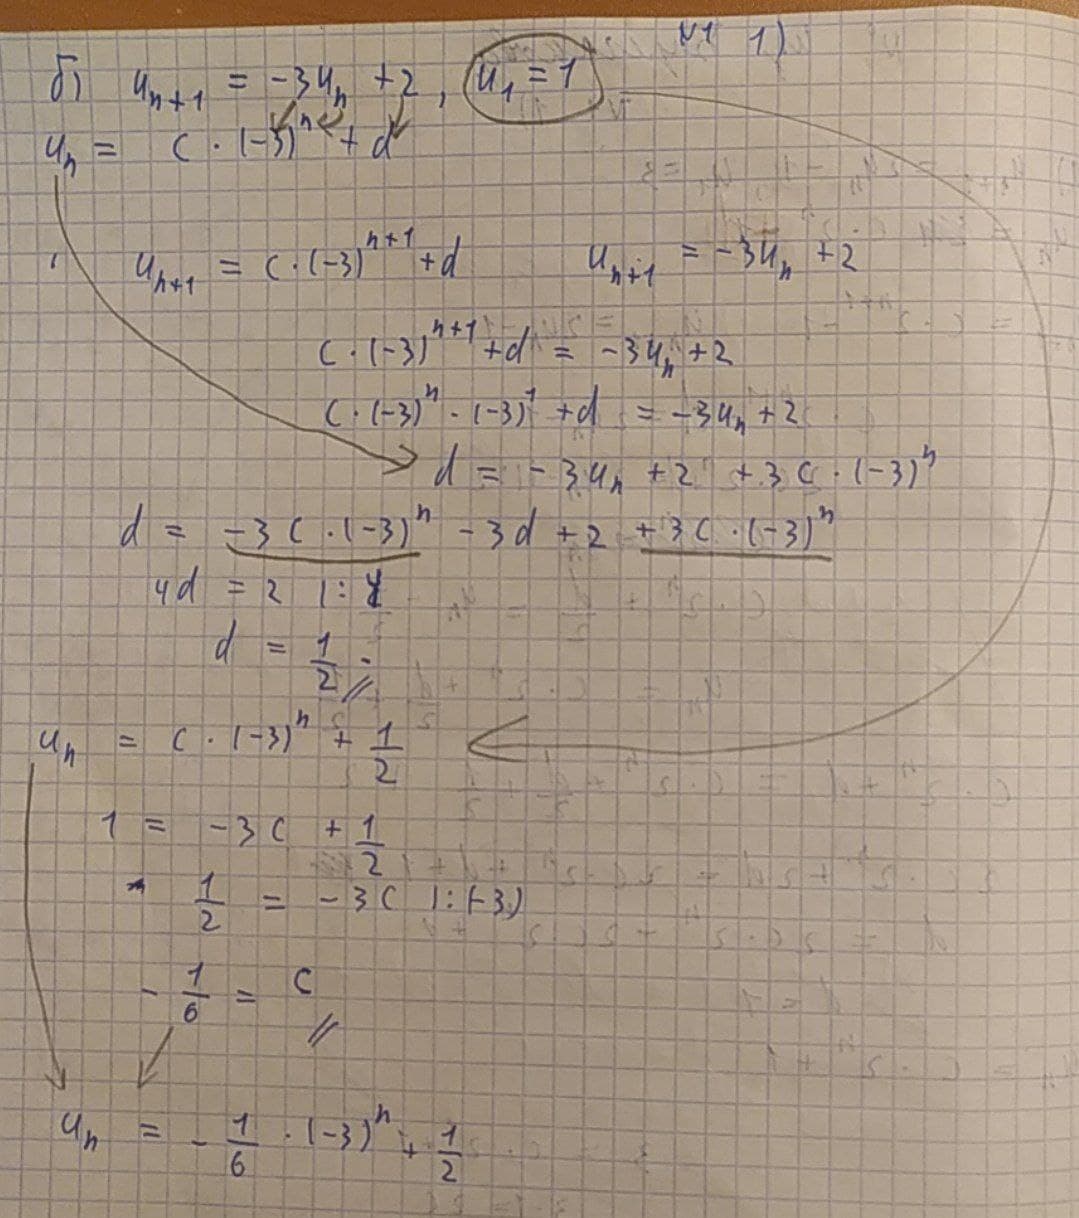 №1 1)
б) u_{n+1} = -3u_n + 2, u_1 = 1
u_n = c · (-3)^n + d
u_{n+1} = c · (-3)^{n+1} + d u_{n+1} = -3u_n + 2
c · (-3)^{n+1} + d = -3u_n + 2
c · (-3)^n · (-3)^1 + d = -3u_n + 2
d = -3u_n + 2 + 3c · (-3)^n
d = -3c · (-3)^n - 3d + 2 + 3c · (-3)^n
4d = 2 |: 4
d = 1/2
u_n = c · (-3)^n + 1/2
1 = -3c + 1/2
1/2 = -3c |: (-3)
-1/6 = c
u_n = -1/6 · (-3)^n + 1/2